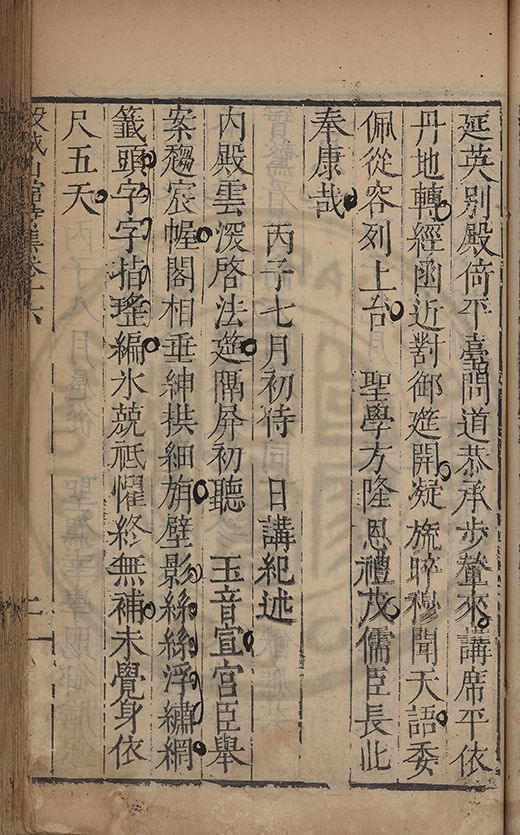 延英別殿倚平臺問道恭承步輦來講席平依
丹地轉經函近對御筵開凝旒睟穆聞天語委
佩從容列上台 聖學方隆恩禮茂儒臣長此
奉康哉
丙子七月初侍 日講紀述
內殿雲深啓法筵隔屏初聽 玉音宣宮臣舉
案趨宸幄閣相垂紳拱細旃壁影絲絲浮繡網
籤頭字字指瑤編氷兢祗懼終無補未覺身依
尺五天
城山館詩集卷十六